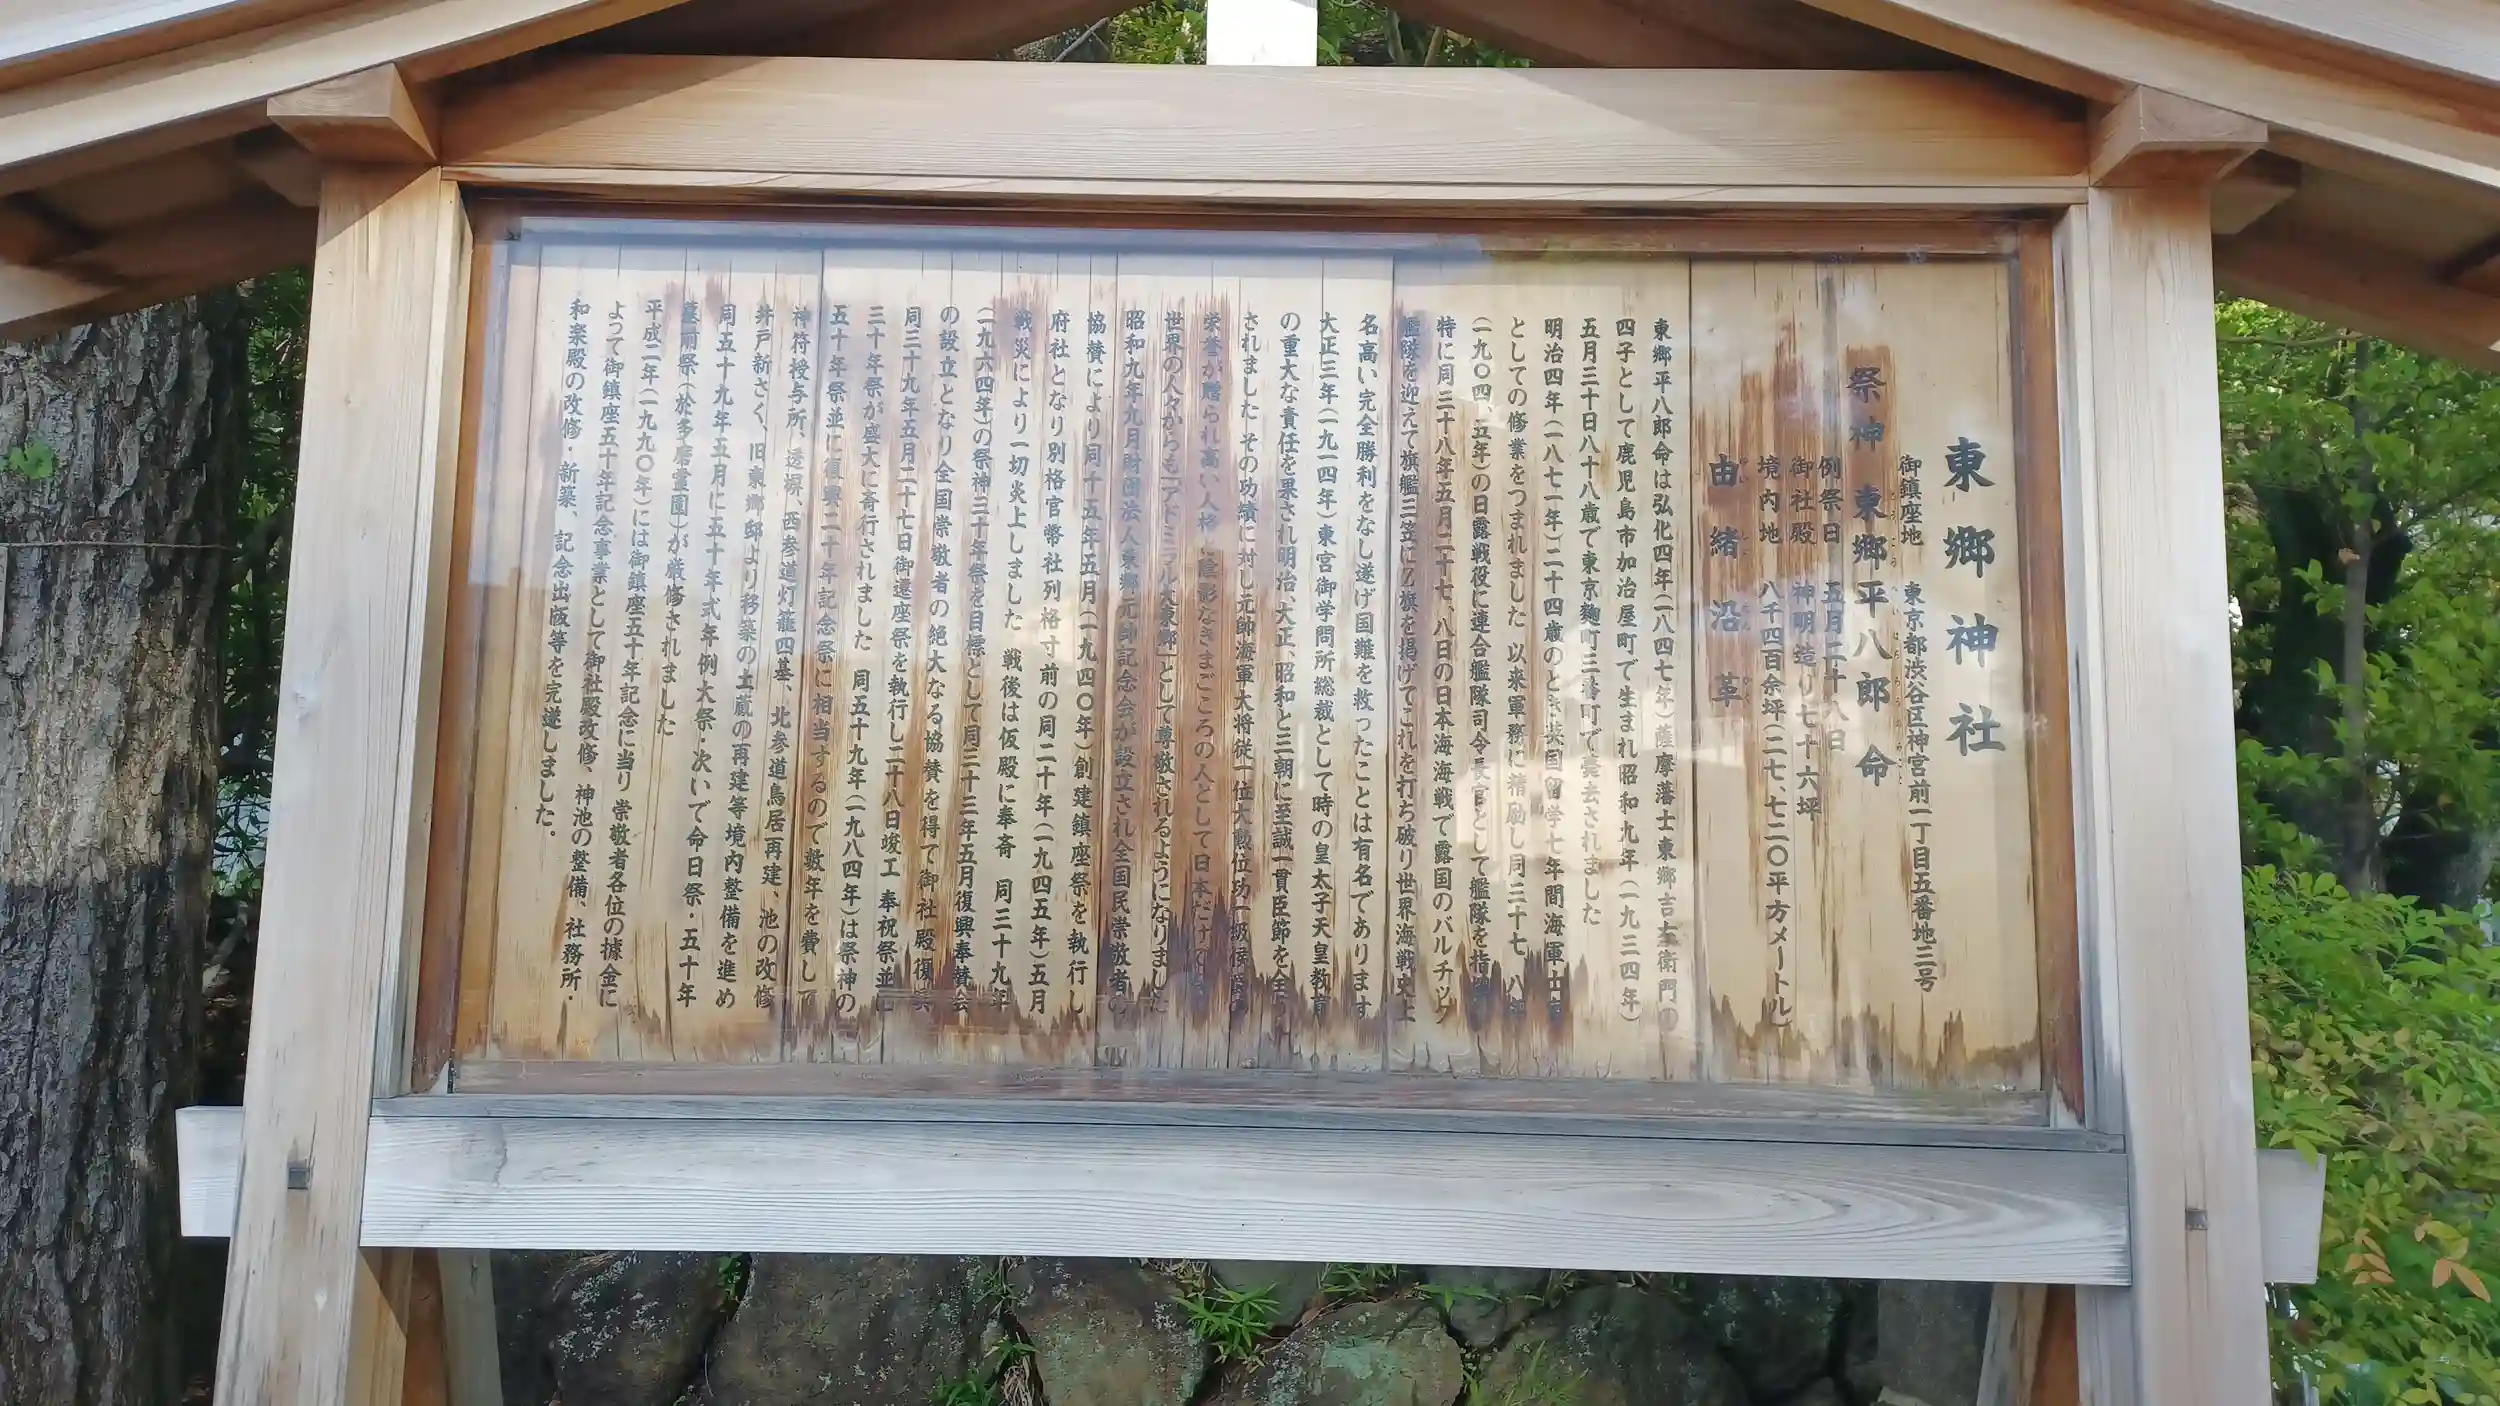 東郷神社
御鎮座地 東京都渋谷区神宮前一丁目五番地三号
祭神 東郷平八郎命
とうごうへいはちろうのみこと
例祭日 五月二十八日
御社殿 神明造り七十六坪
境内地 八千四百余坪(二七、七二〇平方メートル)
由緒沿革
ゆいしょえんかく
東郷平八郎命は弘化四年(一八四七年)薩摩藩士東郷吉左衛門の
四子として鹿児島市加治屋町で生まれ昭和九年(一九三四年)
五月三十日八十八歳で東京麹町三番町で薨去されました
明治四年(一八七一年)二十四歳のとき英国留学七年間海軍士官
としての修業をつまれました 以来軍務に精励し同三十七、八年
(一九〇四、五年)の日露戦役に連合艦隊司令長官として艦隊を指揮
特に同三十八年五月二十七、八日の日本海海戦で露国のバルチック
艦隊を迎えて旗艦三笠にZ旗を掲げてこれを打ち破り世界海戦史上
名高い完全勝利をなし遂げ国難を救ったことは有名であります
大正三年(一九一四年)東宮御学問所総裁として時の皇太子天皇教育
の重大な責任を果され明治、大正、昭和と三朝に至誠一貫臣節を全う
されました その功績に対し元帥海軍大将従一位大勲位功一級侯爵の
栄誉が贈られ高い人格と陰影なきまごころの人として日本だけでなく
世界の人々からも「アドミラル東郷」として尊敬されるようになりました
昭和九年九月財団法人東郷元帥記念会が設立され全国民崇敬者の
協賛により同十五年五月(一九四〇年)創建鎮座祭を執行し
府社となり別格官幣社列格寸前の同二十年(一九四五年)五月
戦災により一切炎上しました 戦後は仮殿に奉斎 同三十九年
(一九六四年)の祭神三十年祭を目標として同三十三年五月復興奉賛会
の設立となり全国崇敬者の絶大なる協賛を得て御社殿復興
同三十九年五月二十七日御遷座祭を執行し二十八日竣工奉祝祭並に
三十年祭が盛大に斎行されました 同五十九年(一九八四年)は祭神の
五十年祭並に復興二十年記念祭に相当するので数年を費して
神符授与所、透塀、西参道灯籠四基、北参道鳥居再建、池の改修
井戸新さく、旧東郷邸より移築の土蔵の再建等境内整備を進め
同五十九年五月に五十年式年例大祭・次いで命日祭・五十年
墓前祭(於多磨霊園)が厳修されました
平成二年(一九九〇年)には御鎮座五十年記念に当り崇敬者各位の據金に
よって御鎮座五十年記念事業として御社殿改修、神池の整備、社務所・
和楽殿の改修・新築、記念出版等を完遂しました。